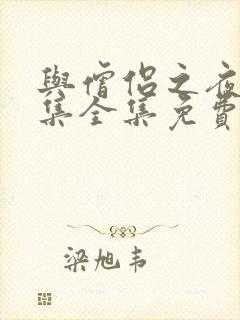 與僧侶之夜
集全集免費
梁旭韦